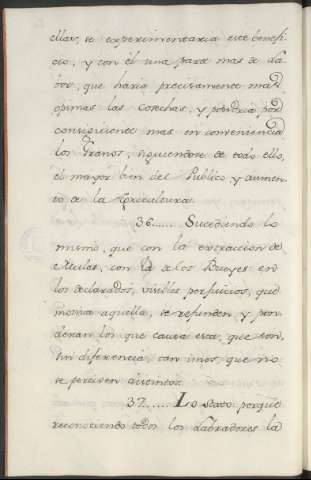 ellas, se experimentaria este benefi
cio, y con él una para mas de la
bor, que haria precisamente mas
opimas las Cosechas, y pondria por
consiguiente mas en conveniencia
los Granos, siguiendose de todo ello,
el mayor bien del Publico y aumen
to de la Agricultura.
36...... Sucediendo lo
mismo, que con la extraccion de
Mulas, con la de los Bueyes en
los declarados, visibles perjuicios, que
motiva aquella, se refunden, y pon
deran los que causa esta, que son,
sin diferencia, tan unos, que no
se perciven distintos.
37...... Lo otro porque
reconociendo todos los Labradores la